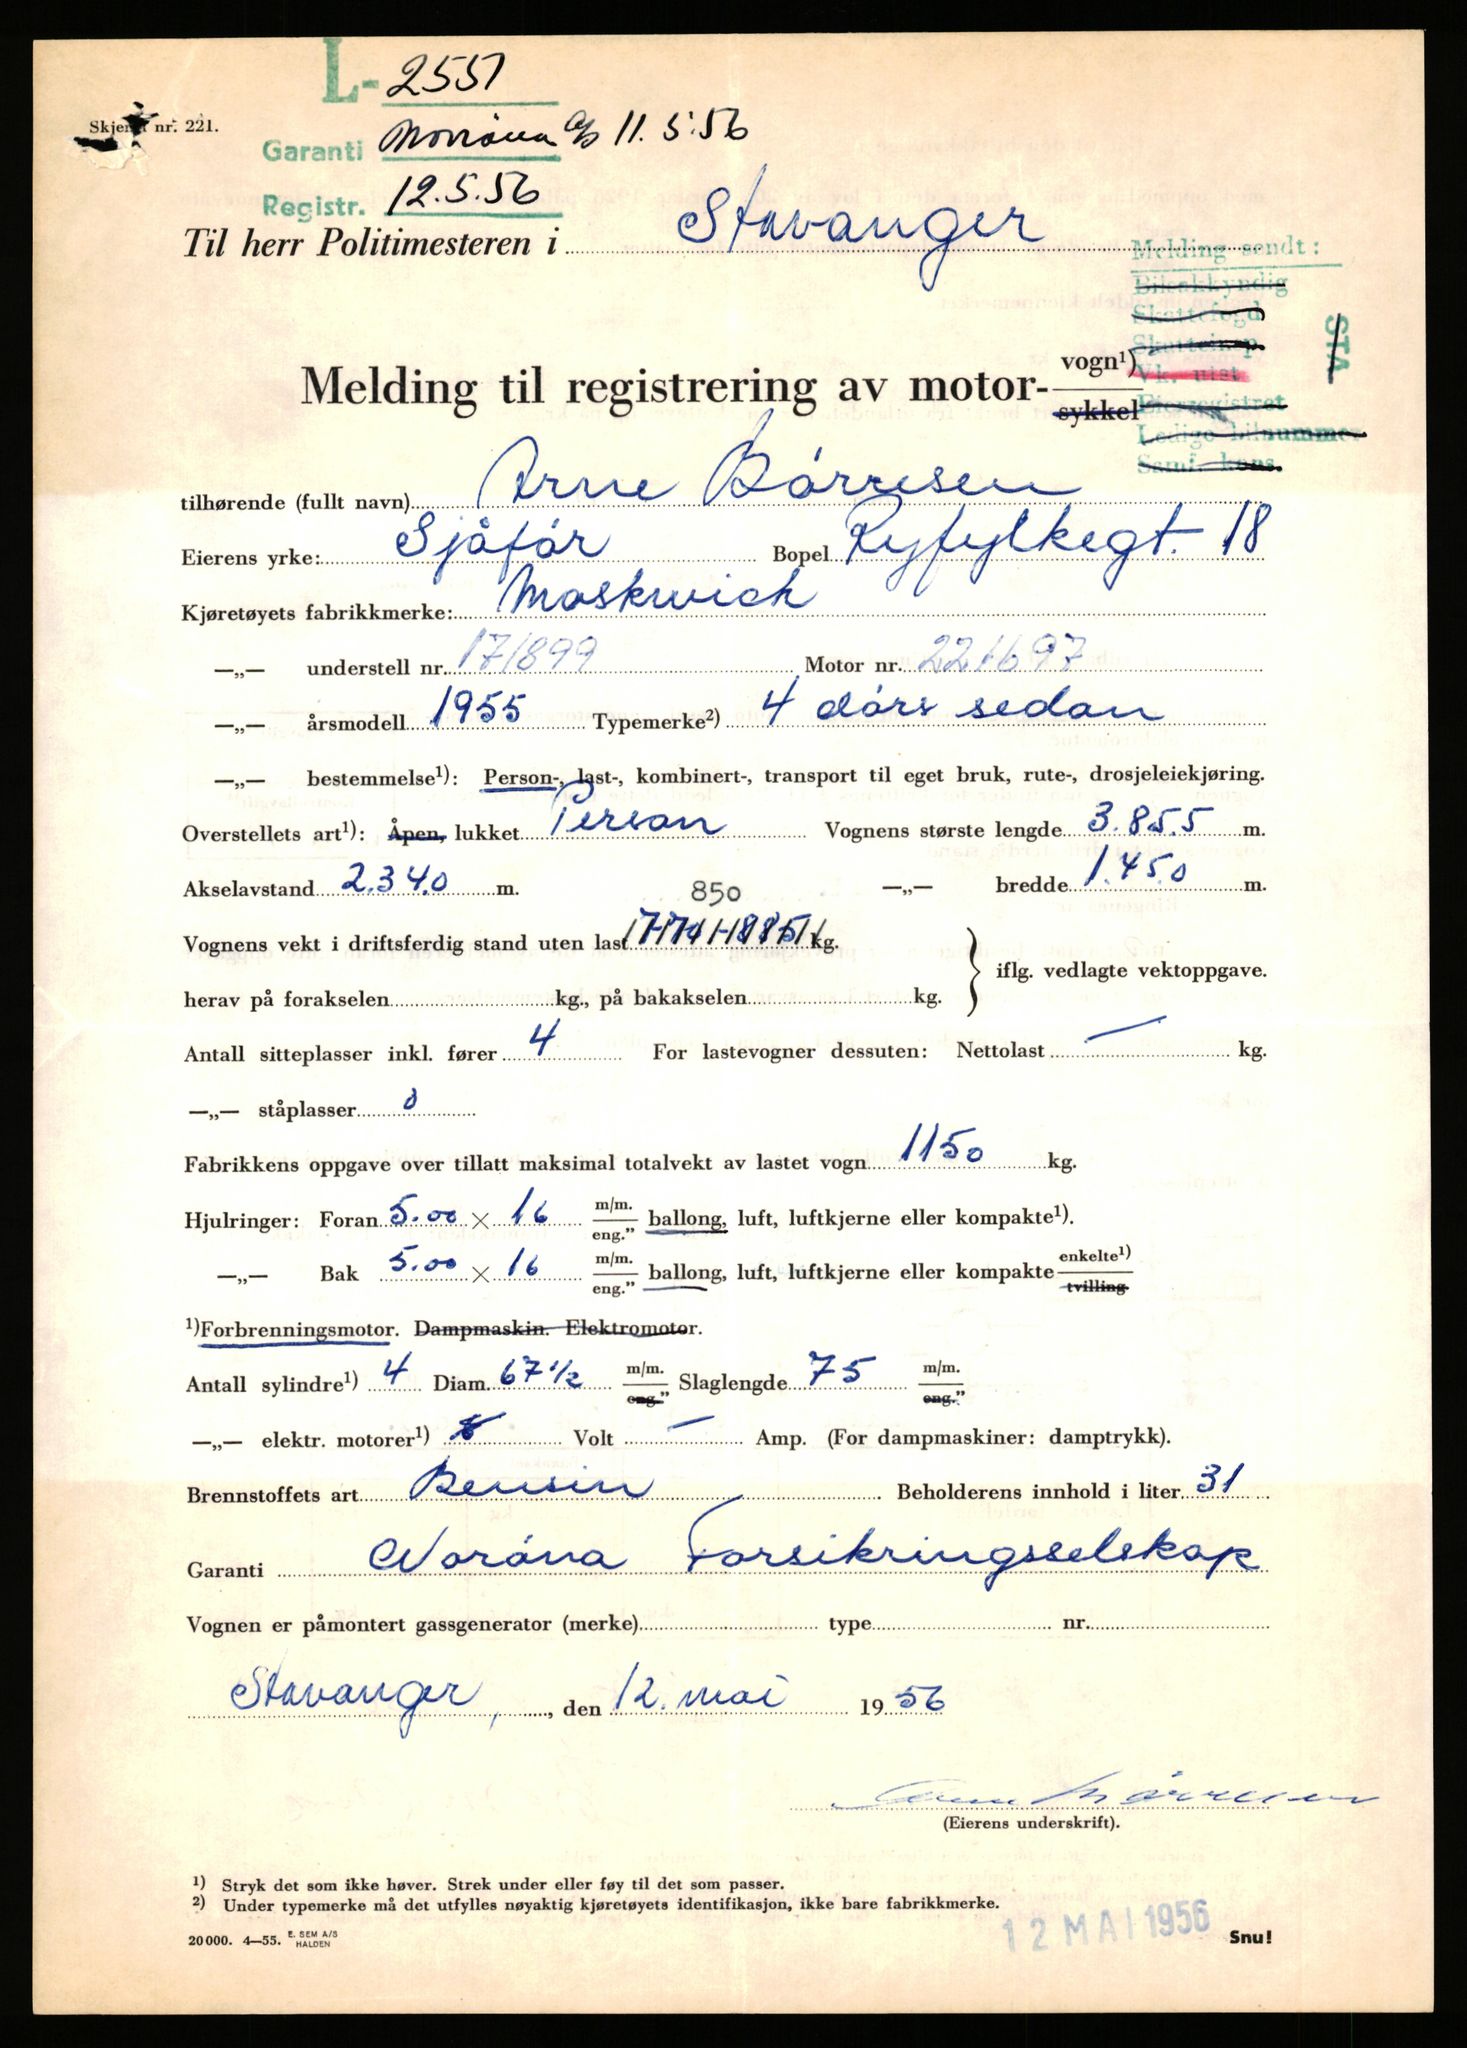 L- 2551
Skjema nr. 221.
Garanti Norröna A/S 11.5.56
Registr. 12.5.56
Til herr Politimesteren i Stavanger
Melding sendt:
Bilsakkyndig
Skattefogd
Skatteinsp
Vk. utst
Eierregistret
Ledige bilnummer
Samf. kons.
STA
Melding til registrering av motor- vogn¹)
sykkel
tilhørende (fullt navn) Arne Börresen
Eierens yrke: Sjåför Bopel Ryfylkegt. 18
Kjøretøyets fabrikkmerke: Moskwich
—„— understell nr. 171899 Motor nr. 221697
—„— årsmodell 1955 Typemerke²) 4 dörs sedan
—„— bestemmelse¹): Person-, last-, kombinert-, transport til eget bruk, rute-, drosjeleiekjøring.
Overstellets art¹): Åpen, lukket Person Vognens største lengde 3.855 m.
Akselavstand 2.340 m. —„— bredde 1.450 m.
850
Vognens vekt i driftsferdig stand uten last kg.
iflg. vedlagte vektoppgave.
herav på forakselen kg., på bakakselen kg.
Antall sitteplasser inkl. fører 4 For lastevogner dessuten: Nettolast — kg.
—„— ståplasser 0
Fabrikkens oppgave over tillatt maksimal totalvekt av lastet vogn 1150 kg.
Hjulringer: Foran 5.00 × 16 m/m. eng.” ballong, luft, luftkjerne eller kompakte¹).
—„— Bak 5.00 × 16 m/m. eng.” ballong, luft, luftkjerne eller kompakte enkelte¹) tvilling
¹)Forbrenningsmotor. Dampmaskin. Elektromotor.
Antall sylindre¹) 4 Diam. 67 1/2 m/m. eng.” Slaglengde 75 m/m. eng.”
—„— elektr. motorer¹) Volt — Amp. (For dampmaskiner: damptrykk).
Brennstoffets art Bensin Beholderens innhold i liter 31
Garanti Noröna Forsikringsselskap
Vognen er påmontert gassgenerator (merke) type nr.
Stavanger, den 12. mai 1956
Arne Börresen
(Eierens underskrift).
¹) Stryk det som ikke høver. Strek under eller føy til det som passer.
²) Under typemerke må det utfylles nøyaktig kjøretøyets identifikasjon, ikke bare fabrikkmerke.
20000. 4—55. E. SEM A/S HALDEN
12 MAI 1956
Snu!